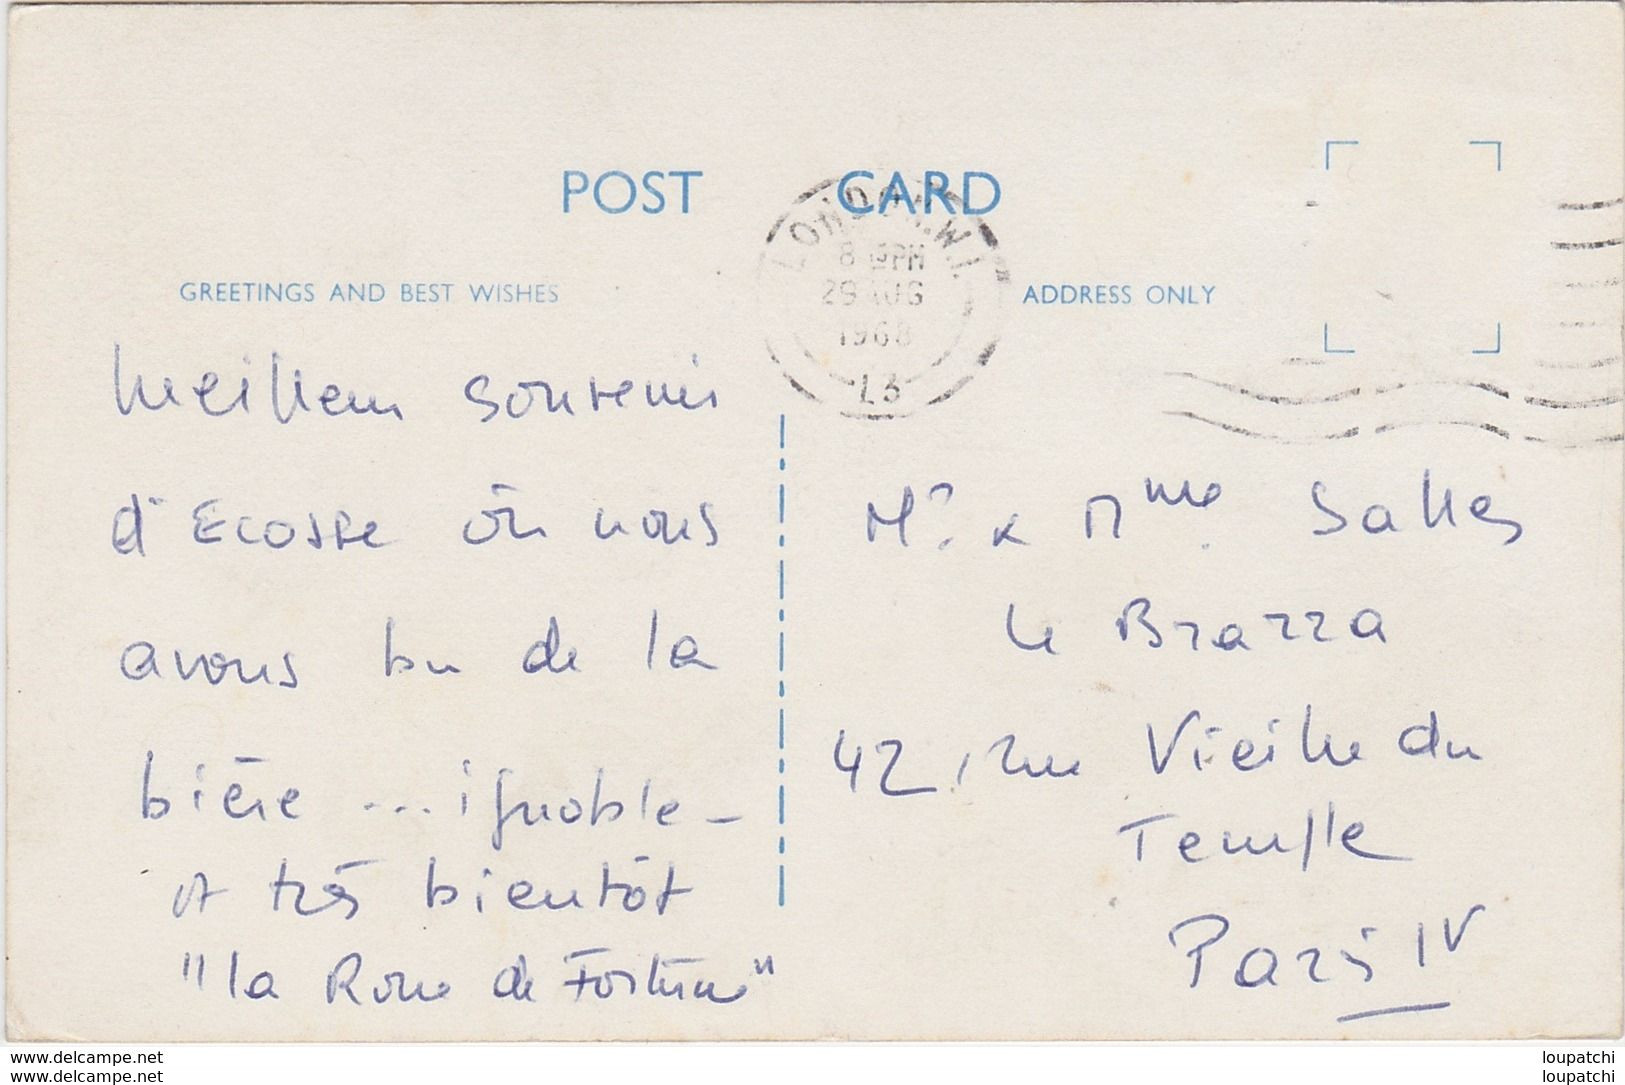 POST CARD
LONDON.W.1.
8 PM
29 AUG
1968
L3
GREETINGS AND BEST WISHES
ADDRESS ONLY
Meilleur souvenir
d'Ecosse où nous
avons bu de la
bière ... ignoble –
A très bientôt
"la Roue de Fortune"
Mr. & Mme Salles
Le Brazza
42, rue Vieille du
Temple
Paris IV
www.delcampe.net
www.delcampe.net
loupatchi
loupatchi